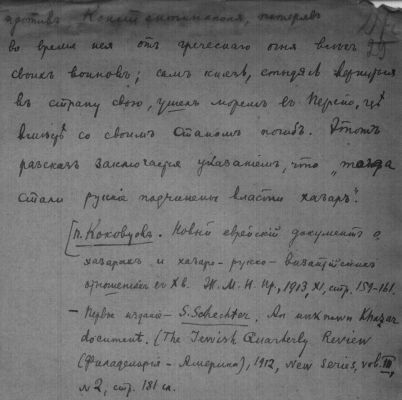 против Константинополя, потеряв
во время нея отъ греческаго огня всѣхъ
своихъ воиновъ; самъ князь, стыдясь вернуться
въ страну свою, ушелъ моремъ въ Персію, гдѣ
вмѣстѣ со своимъ станомъ погибъ. Этотъ
разсказъ заключается указаніемъ, что „тогда
стали русскіе подчинены власти хазаръ“.
[П. Коковцовъ. Новый еврейскій документъ о
хазарахъ и хазаро-русско-византійскихъ
отношеніяхъ въ X в. Ж. М. Н. Пр., 1913, XI, стр. 159-161.
– Первое изданіе – S. Schechter. An unknown Khazar
document. (The Jewish Quarterly Review
(Филадельфія – Америка), 1912, New Series, vol. III,
№2, стр. 181 сл.